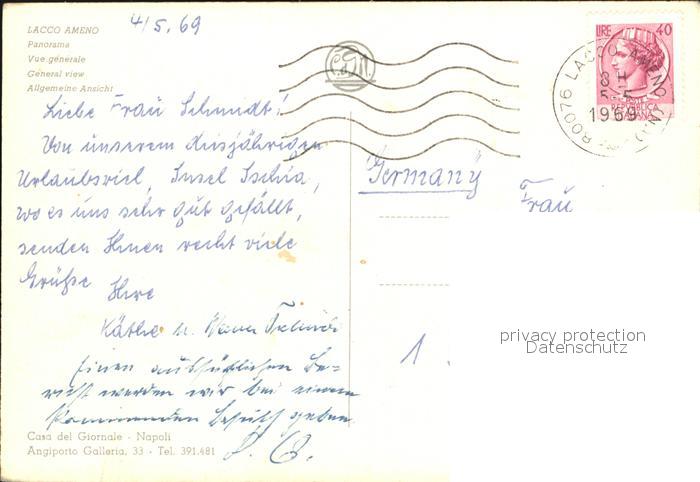 4/5.69
LACCO AMENO
Panorama
Vue générale
General view
Allgemeine Ansicht
LIRE 40
POSTE
REPUBBLICA
ITALIANA
80076 LACCO AMENO (NA)
8 H
5-5
1969
Liebe Frau Schmidt!
Von unserem diesjährigen
Urlaubsziel, Insel Ischia,
wo es uns sehr gut gefällt,
senden Ihnen recht viele
Grüße
Ihre
Käthe u.
Germany
Frau
1.
privacy protection
Datenschutz
Einen ausführlichen Be-
richt werden wir bei einem
kommenden Besuch geben.
D. O.
Casa del Giornale - Napoli
Angiporto Galleria, 33 - Tel. 391.481